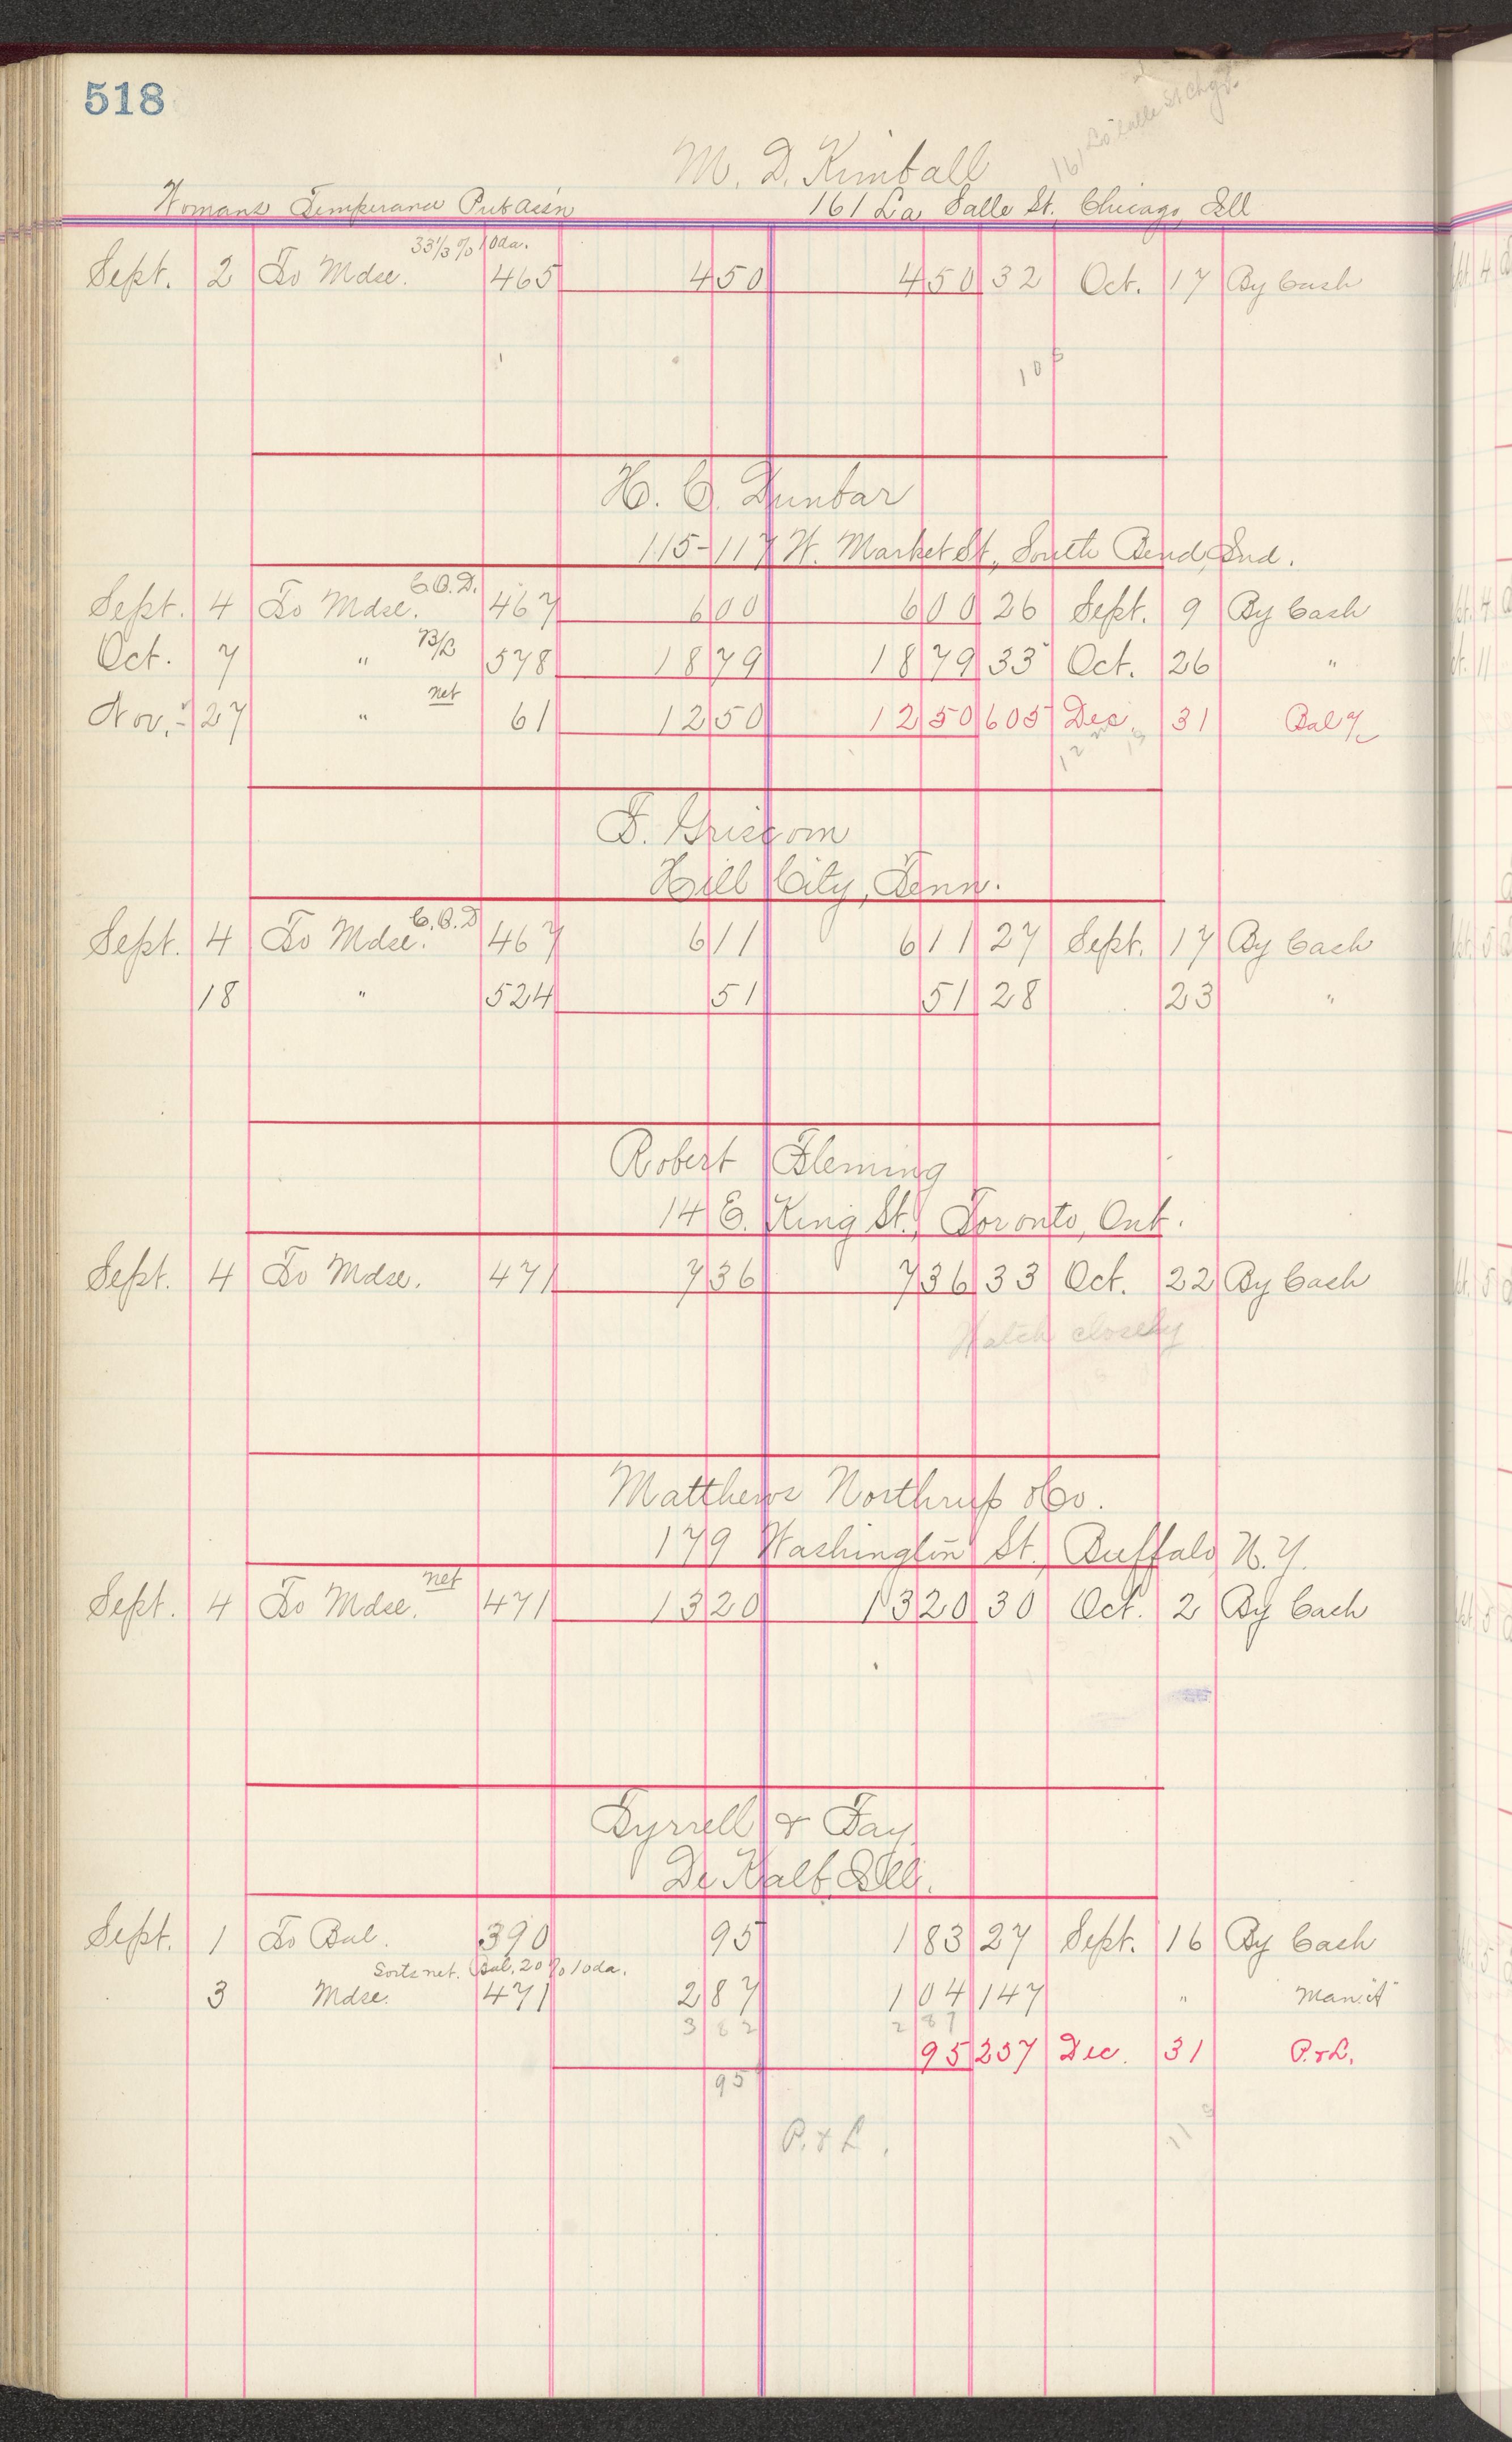 518
161 La Salle St Chgo.
M. D. Kimball
Womans Temperance Pub Assn 161 La Salle St. Chicago, Ill
33 1/3 % 10 da.
Sept. 2 To Mdse. 465 4 50 4 50 32 Oct. 17 By Cash
10 6
H. C. Dunbar
115-117 W. Market St., South Bend, Ind.
C.O.D.
Sept. 4 To Mdse. 467 6 00 6 00 26 Sept. 9 By Cash
Oct. 7 " B/3 578 18 79 18 79 33 Oct. 26 "
net
Nov. 27 " 61 12 50 12 50 605 Dec. 31 Bal %
F. Griscom
Hill City, Tenn.
C.O.D
Sept. 4 To Mdse. 467 6 11 6 11 27 Sept. 17 By Cash
18 " 524 51 51 28 23 "
Robert Fleming
14 E. King St., Toronto, Ont.
Sept. 4 To Mdse. 471 7 36 7 36 33 Oct. 22 By Cash
Watch closely
Matthews Northrup & Co.
179 Washington St., Buffalo, N.Y.
net
Sept. 4 To Mdse. 471 13 20 13 20 30 Oct. 2 By Cash
Tyrrell & Fay
De Kalb, Ill.
Sept. 1 To Bal. 390 95 1 83 27 Sept. 16 By Cash
Sorts net. Bal. 20% 10 da.
3 Mdse. 471 2 87 1 04 147 " Man. "A"
3 82 2 87
95 257 Dec. 31 P. & L.
95
P. & L.